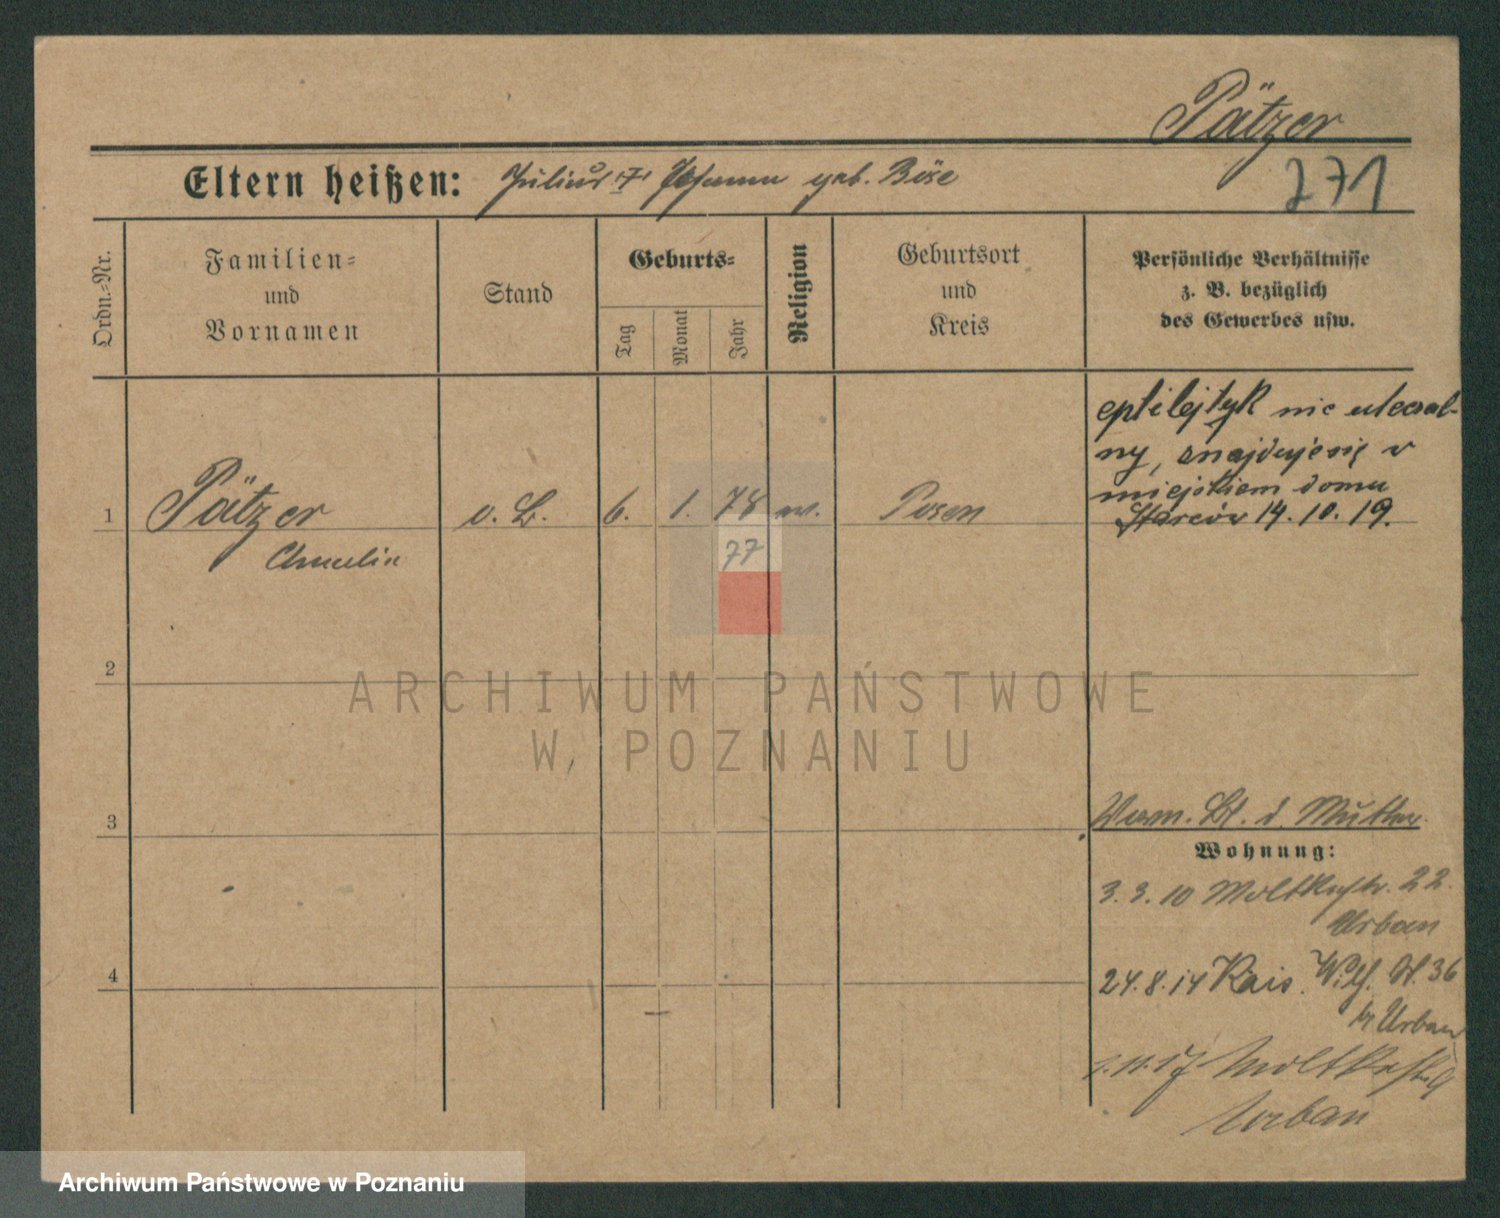 Pätzer
271
Eltern heißen: Julius † Johanna geb. Böse
Ordn.-Nr.
Familien-
und
Vornamen
Stand
Geburts-
Tag
Monat
Jahr
Religion
Geburtsort
und
Kreis
Persönliche Verhältnisse
z. B. bezüglich
des Gewerbes usw.
1
Pätzer
6. 1. 78
77
Posen
eptilejtyk nie uleczal-
ny, znajduje się w
miejskiem domu
Starców 14.10.19.
2
3
d. Mutter
Wohnung:
3.3.10 Moltkestr. 22.
Urban
4
24.8.14 Kais. Wilh. St. 36
Urban
Urban
ARCHIWUM PAŃSTWOWE
W POZNANIU
Archiwum Państwowe w Poznaniu